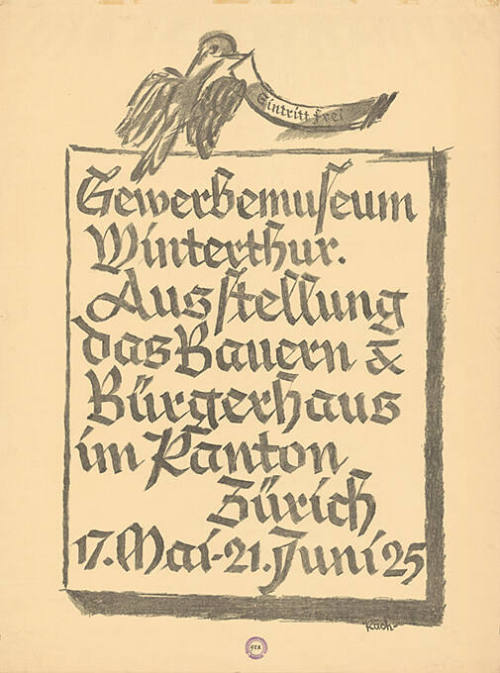 Eintritt frei
Gewerbemuseum
Winterthur.
Ausstellung
das Bauern &
Bürgerhaus
im Kanton
Zürich
17. Mai-21. Juni 25